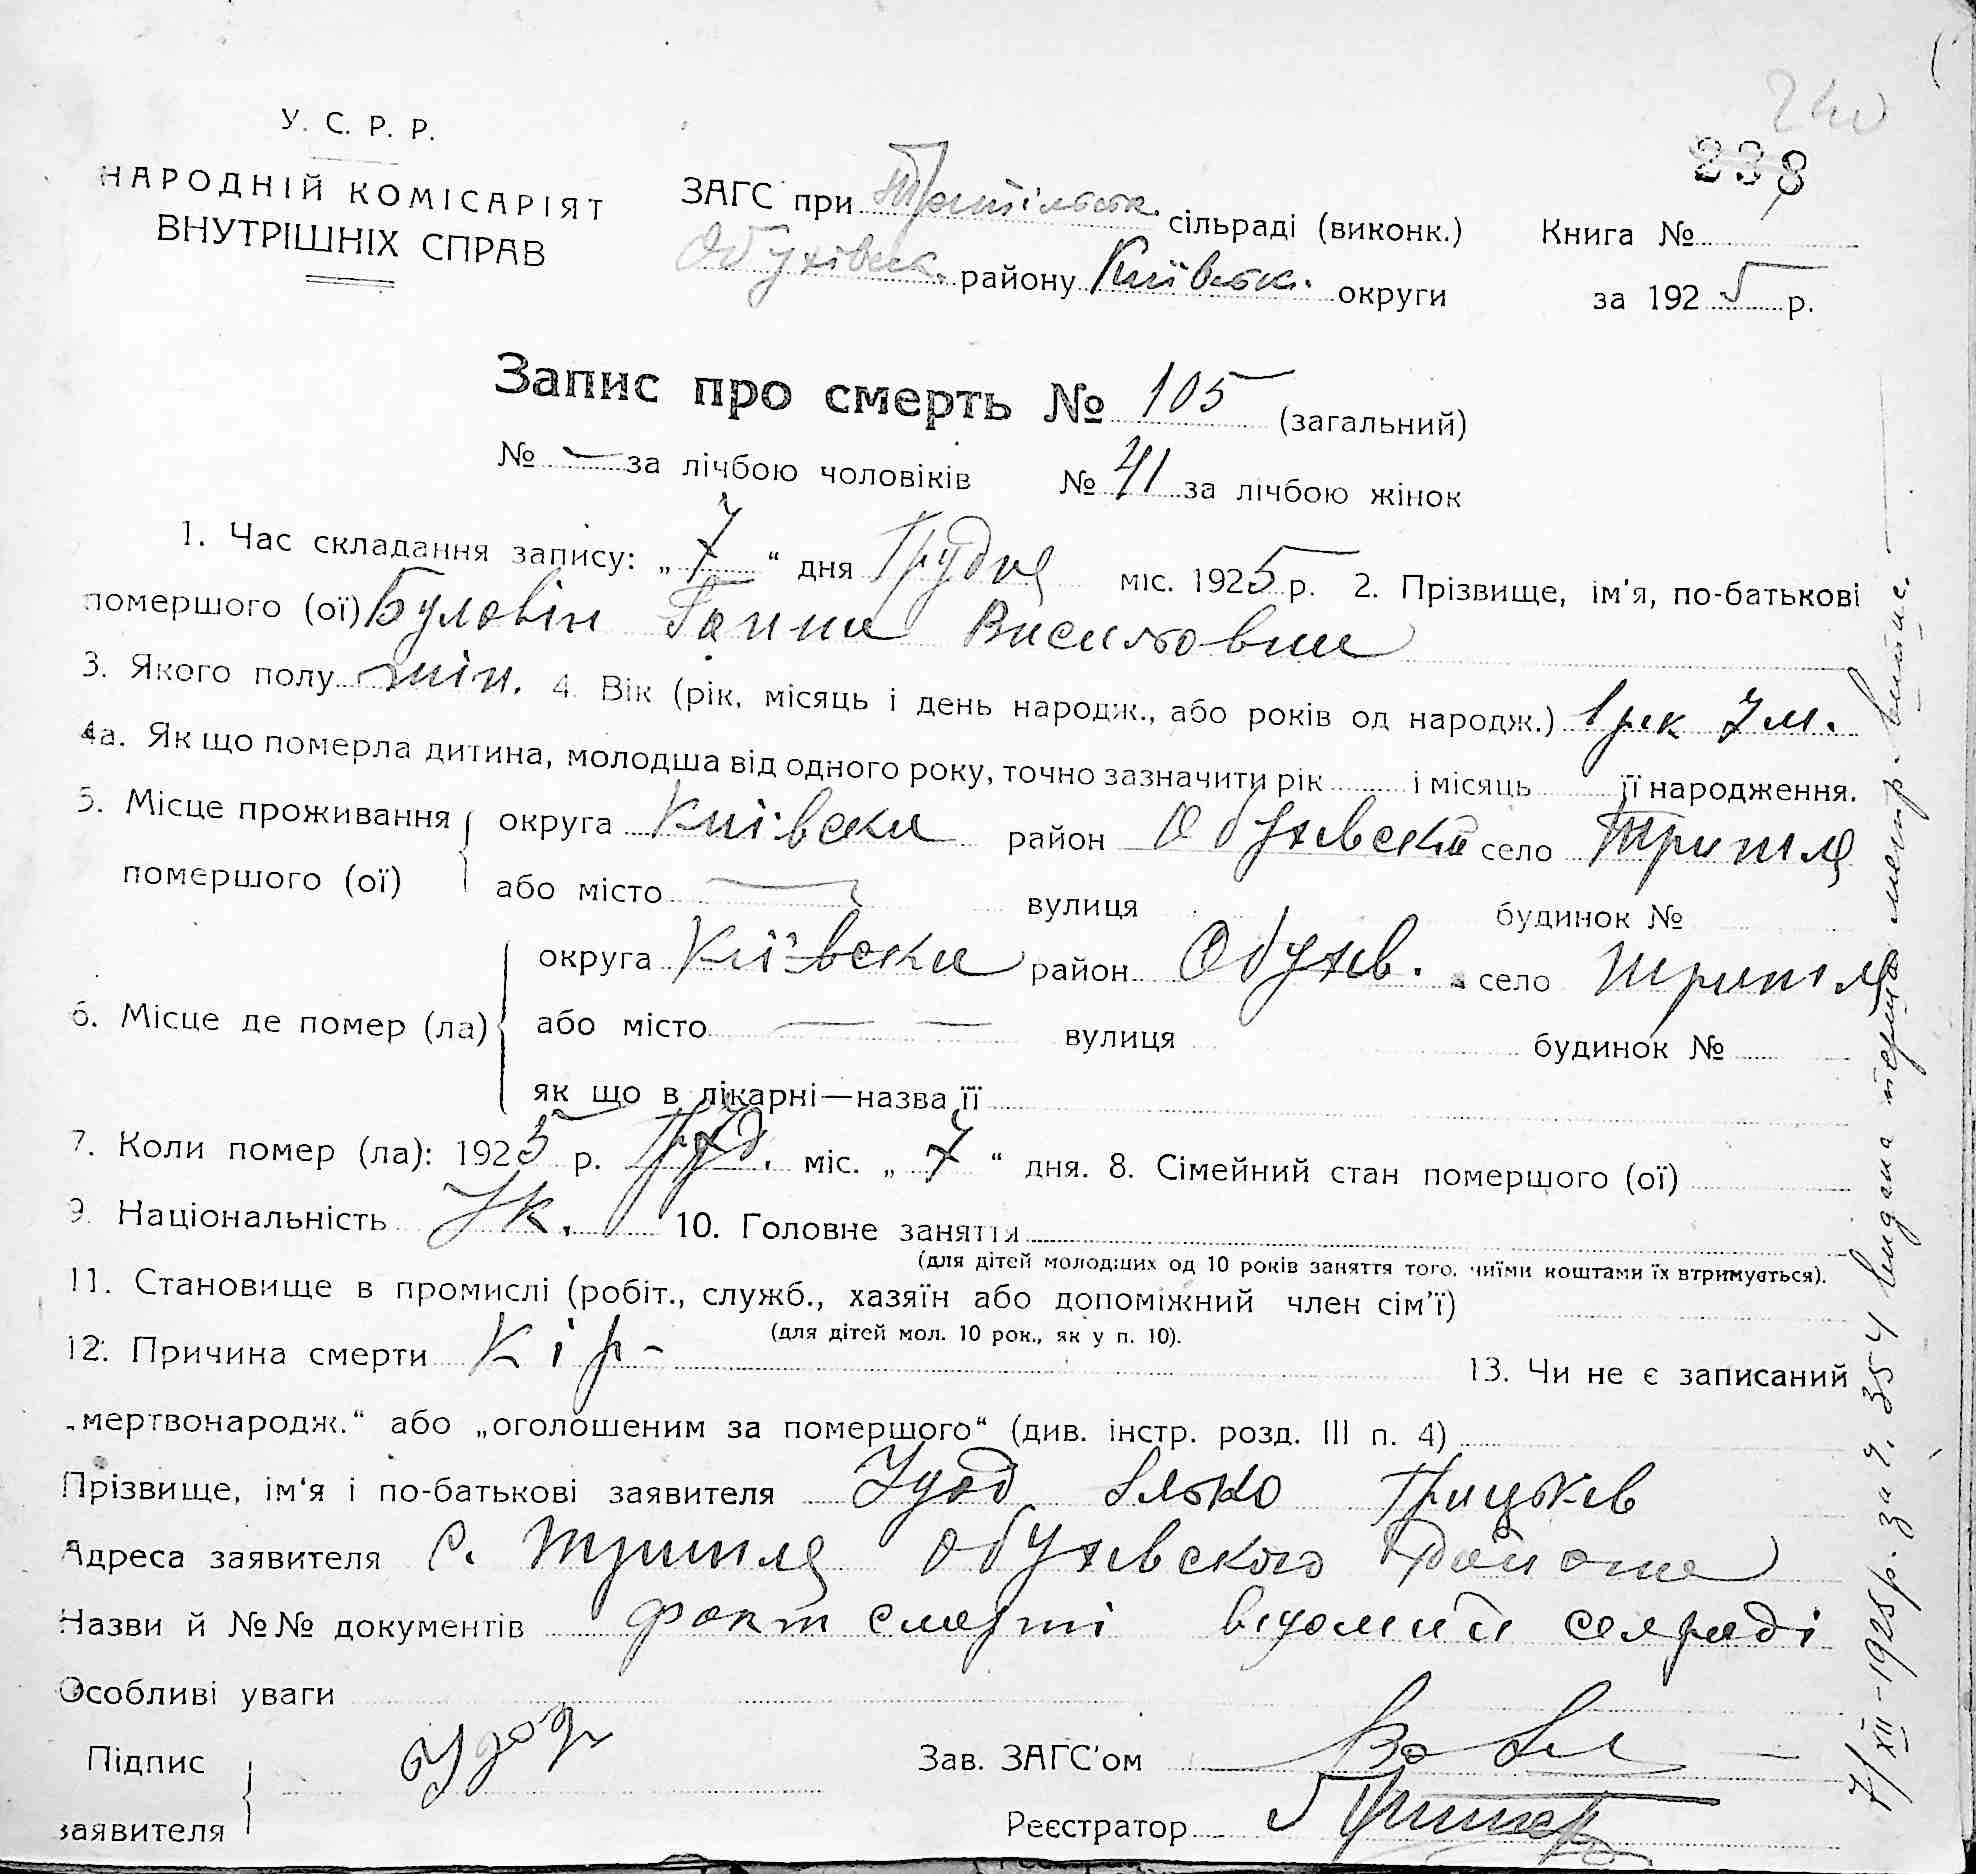 240
238
У. С. Р. Р.
НАРОДНІЙ КОМІСАРІЯТ
ВНУТРІШНІХ СПРАВ
ЗАГС при Трипільськ. сільраді (виконк.) Книга №
Обухівськ. району Київськ. округи за 1925 р.
Запис про смерть № 105 (загальний)
№ — за лічбою чоловіків № 41 за лічбою жінок
1. Час складання запису: „7“ дня Грудня міс. 1925 р. 2. Прізвище, ім'я, по-батькові
помершого (ої) Буловін Ганна Василовна
3. Якого полу жін. 4. Вік (рік, місяць і день народж., або років од народж.) 1 рік 7 м.
4а. Як що померла дитина, молодша від одного року, точно зазначити рік і місяць її народження.
5. Місце проживання помершого (ої) округа Київска район Обухівский село Трипілля
або місто — вулиця будинок №
6. Місце де помер (ла) округа Київска район Обухів. село Трипілля
або місто — — вулиця будинок №
як що в лікарні—назва її
7. Коли помер (ла): 1925 р. Груд. міс. „7“ дня. 8. Сімейний стан помершого (ої)
9. Національність Ук. 10. Головне заняття
(для дітей молодших од 10 років заняття того, чиїми коштами їх втримується).
11. Становище в промислі (робіт., служб., хазяїн або допоміжний член сім'ї)
(для дітей мол. 10 рок., як у п. 10).
12. Причина смерти Кір - 13. Чи не є записаний
„мертвонародж.“ або „оголошеним за помершого“ (див. інстр. розд. III п. 4)
Прізвище, ім'я і по-батькові заявителя Грицьків
Адреса заявителя с. Трипілля Обухівского Району
Назви й №№ документів факт смерті відомий селраді
Особливі уваги
Підпис
заявителя
Зав. ЗАГС'ом
Реєстратор
7/XII-1925 р. за ч. 354 видана перша метр. випис.